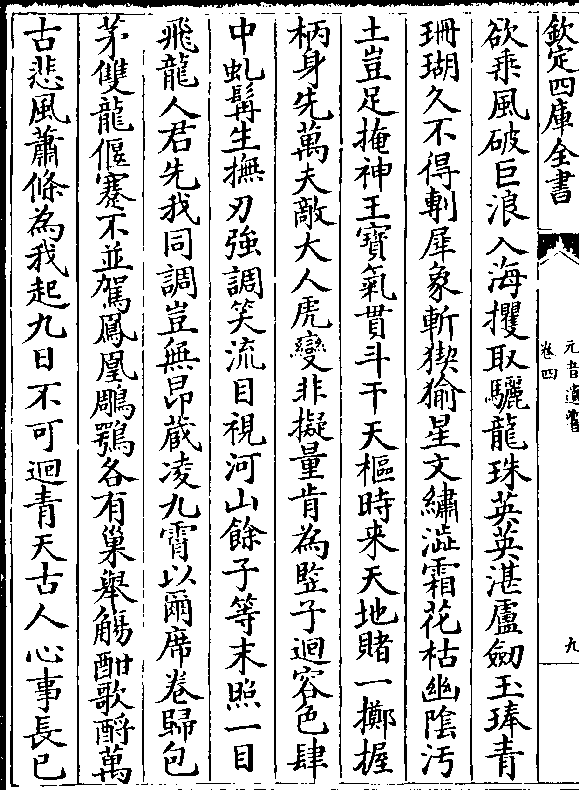 欽定四庫全書
元音遺響
卷四
九
欲乘風破巨浪入海攫取驪龍珠英英湛盧劒玉琫青
珊瑚久不得剸犀象斬猰㺄星文繡澁霜花枯幽陰汚
土豈足掩神王寶氣貫斗干天樞時來天地賭一擲握
柄身先萬夫敵大人虎變非擬量肯為竪子迴容色肆
中虬髯生撫刃強調笑流目視河山餘子等末照一目
飛龍人君先我同調豈無昂藏凌九霄以爾席卷歸包
茅雙龍偃蹇不並駕鳳凰鵰鶚各有巢舉觴酣歌酹萬
古悲風蕭條為我起九日不可迴青天古人心事長已